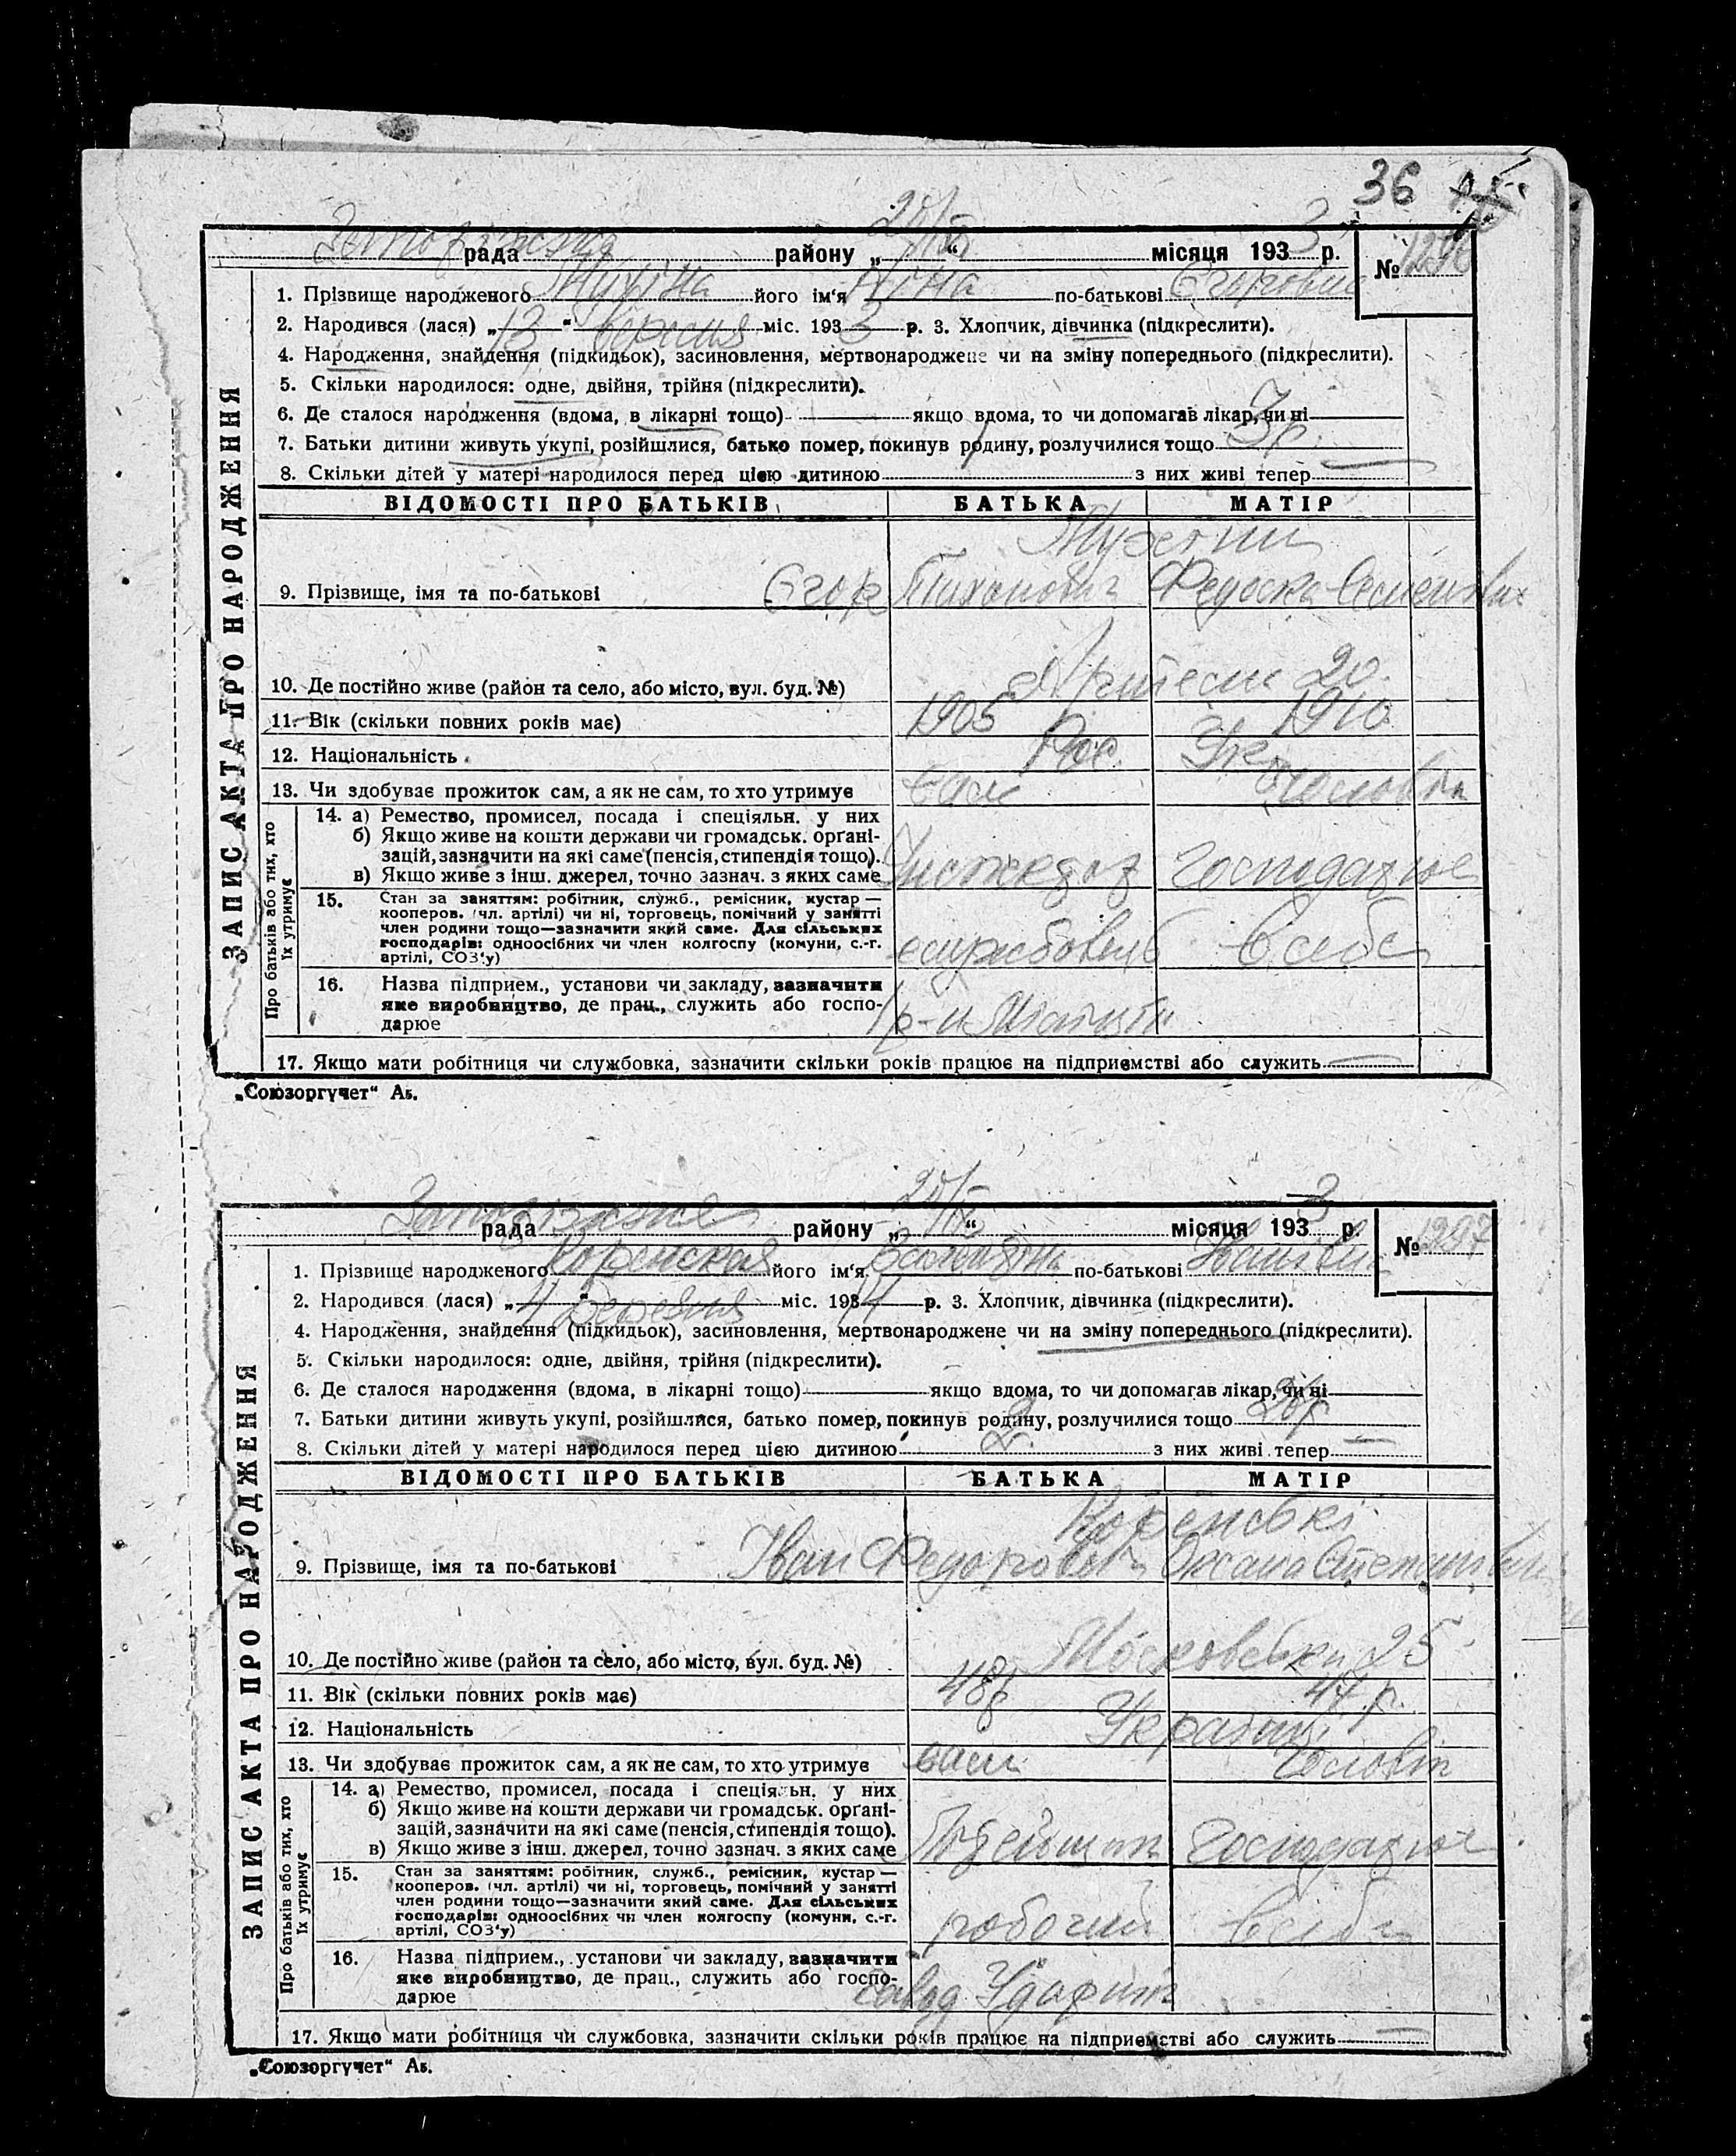 36
рада району „ 25/IX “ місяця 193 3 р. № 1296
1. Прізвище народженого його ім‘я Ніна по-батькові Єгоровна
2. Народився (лася) „ 13 “ вересня міс. 193 3 р. 3. Хлопчик, дівчинка (підкреслити).
4. Народження, знайдення (підкидьок), засиновлення, мертвонароджене чи на зміну попереднього (підкреслити).
5. Скільки народилося: одне, двійня, трійня (підкреслити).
6. Де сталося народження (вдома, в лікарні тощо) якщо вдома, то чи допомагав лікар, чи ні
7. Батьки дитини живуть укупі, розійшлися, батько помер, покинув родину, розлучилися тощо 3 р.
8. Скільки дітей у матері народилося перед цією дитиною з них живі тепер
ЗАПИС АКТА ПРО НАРОДЖЕННЯ
ВІДОМОСТІ ПРО БАТЬКІВ БАТЬКА МАТІР
9. Прізвище, імя та по-батькові Єгор Тихонович Федоска Семеновна
10. Де постійно живе (район та село, або місто, вул. буд. №) Артема 20.
11. Вік (скільки повних років має) 1905 1910
12. Національність Рос. Укр.
13. Чи здобуває прожиток сам, а як не сам, то хто утримує сам чоловік
Про батьків або тих, хто їх утримує
14. а) Ремество, промисел, посада і спеціяльн. у них
б) Якщо живе на кошти держави чи громадськ. органі-
зацій, зазначити на які саме (пенсія, стипендія тощо).
в) Якщо живе з інш. джерел, точно зазнач. з яких саме господарює
15. Стан за заняттям: робітник, служб., ремісник, кустар —
кооперов. (чл. артілі) чи ні, торговець, помічний у занятті
член родини тощо—зазначити який саме. Для сільських
господарів: одноосібних чи член колгоспу (комуни, с.-г.
артілі, СОЗ‘у) службовець в себе
16. Назва підприєм., установи чи закладу, зазначити
яке виробництво, де прац., служить або госпо-
дарює
17. Якщо мати робітниця чи службовка, зазначити скільки років працює на підприємстві або служить
„Союзоргучет“ Аб.
рада району „ 25/IX “ місяця 193 3 р. № 1297
1. Прізвище народженого Коренская його ім‘я Валентина по-батькові Іванівна
2. Народився (лася) „ 4 “ березня міс. 193 р. 3. Хлопчик, дівчинка (підкреслити).
4. Народження, знайдення (підкидьок), засиновлення, мертвонароджене чи на зміну попереднього (підкреслити).
5. Скільки народилося: одне, двійня, трійня (підкреслити).
6. Де сталося народження (вдома, в лікарні тощо) якщо вдома, то чи допомагав лікар, чи ні
7. Батьки дитини живуть укупі, розійшлися, батько помер, покинув родину, розлучилися тощо
8. Скільки дітей у матері народилося перед цією дитиною 2. з них живі тепер
ЗАПИС АКТА ПРО НАРОДЖЕННЯ
ВІДОМОСТІ ПРО БАТЬКІВ БАТЬКА МАТІР
Коренські
9. Прізвище, імя та по-батькові Іван Федорович Оксана Степанівна
10. Де постійно живе (район та село, або місто, вул. буд. №) Московська 25
11. Вік (скільки повних років має) 48 р 47 р.
12. Національність Українці
13. Чи здобуває прожиток сам, а як не сам, то хто утримує сам чоловік
Про батьків або тих, хто їх утримує
14. а) Ремество, промисел, посада і спеціяльн. у них
б) Якщо живе на кошти держави чи громадськ. органі-
зацій, зазначити на які саме (пенсія, стипендія тощо).
в) Якщо живе з інш. джерел, точно зазнач. з яких саме господарює
15. Стан за заняттям: робітник, служб., ремісник, кустар —
кооперов. (чл. артілі) чи ні, торговець, помічний у занятті
член родини тощо—зазначити який саме. Для сільських
господарів: одноосібних чи член колгоспу (комуни, с.-г.
артілі, СОЗ‘у) робочий в себе
16. Назва підприєм., установи чи закладу, зазначити
яке виробництво, де прац., служить або госпо-
дарює завод
17. Якщо мати робітниця чи службовка, зазначити скільки років працює на підприємстві або служить
„Союзоргучет“ Аб.